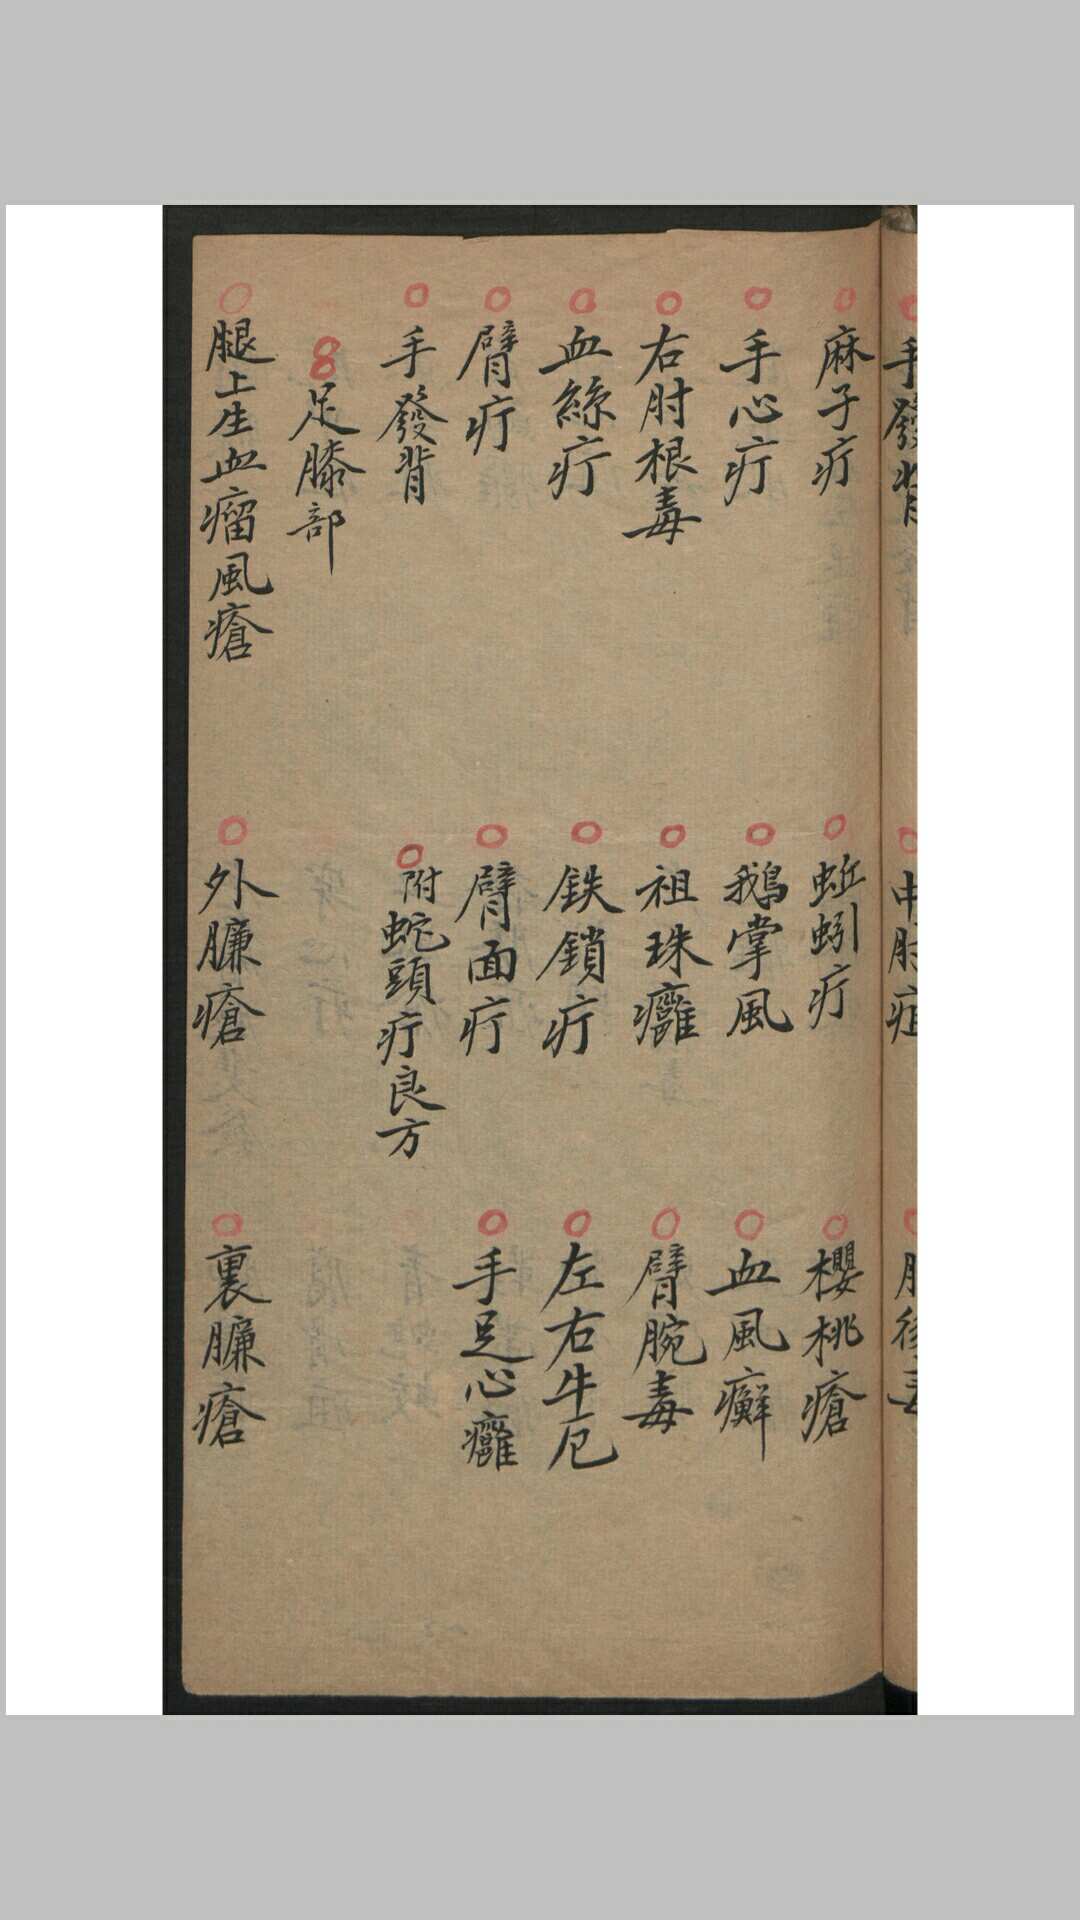 手發背
麻子疔 蚯蚓疔 櫻桃瘡
手心疔 鵝掌風 血風癬
右肘根毒 祖珠癰 臂腕毒
血絲疔 鉄鎖疔 左右牛厄
臂疔 臂面疔 手足心癰
手發背 附蛇頭疔良方
8足膝部
腿上生血瘤風瘡 外臁瘡 裏臁瘡